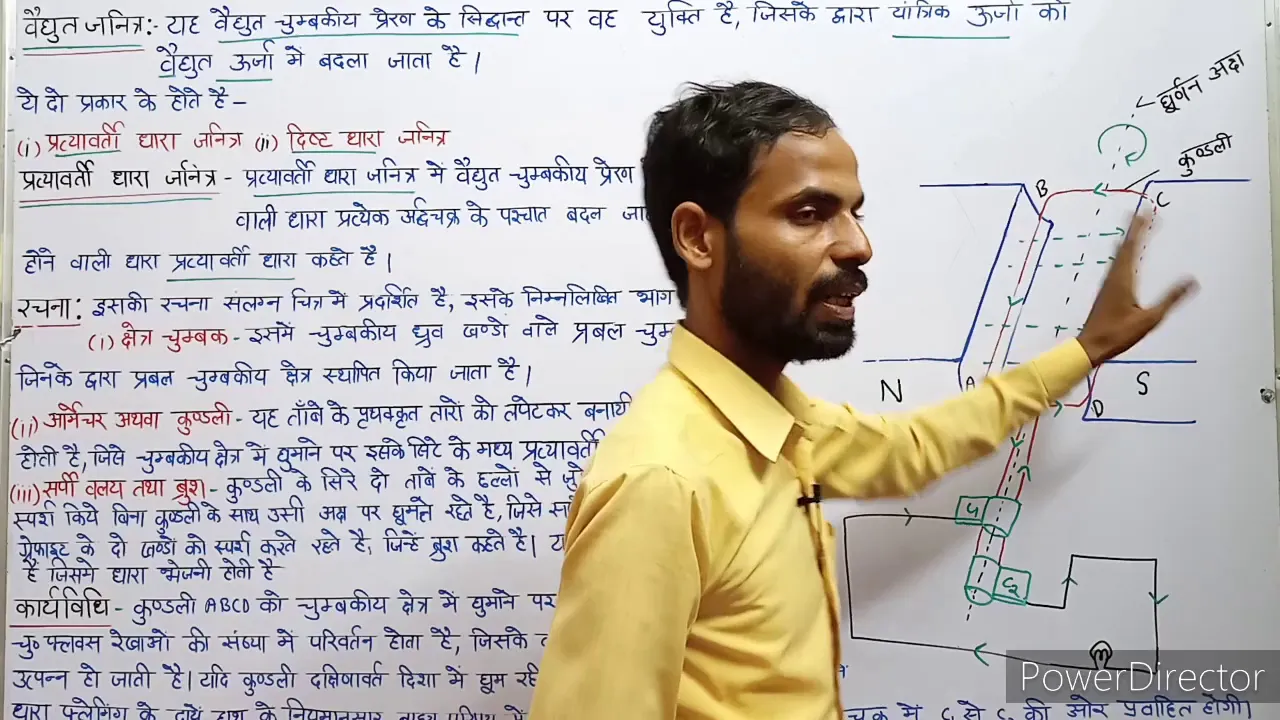 वैद्युत जनित्र:- यह वैद्युत चुम्बकीय प्रेरण के सिद्धान्त पर वह युक्ति है, जिसके द्वारा यांत्रिक ऊर्जा को
वैद्युत ऊर्जा में बदला जाता है।
ये दो प्रकार के होते है –
(i) प्रत्यावर्ती धारा जनित्र (ii) दिष्ट धारा जनित्र
प्रत्यावर्ती धारा जनित्र - प्रत्यावर्ती धारा जनित्र में वैद्युत चुम्बकीय प्रेरण
वाली धारा प्रत्येक अर्द्धचक्र के पश्चात बदल
होने वाली धारा प्रत्यावर्ती धारा कहते है।
रचना: इसकी रचना संलग्न चित्र में प्रदर्शित है, इसके निम्नलिखित भाग
(i) क्षेत्र चुम्बक - इसमें चुम्बकीय ध्रुव खण्डो वाले प्रबल
जिनके द्वारा प्रबल चुम्बकीय क्षेत्र स्थापित किया जाता है।
(ii) आर्मेचर अथवा कुण्डली - यह ताँबे के पृथक्कृत तारों को लपेटकर
होती है, जिसे चुम्बकीय क्षेत्र में घुमाने पर इसके सिरे के मध्य प्रत्यावर्ती
(iii) सर्पी वलय तथा ब्रुश - कुण्डली के सिरे दो तांबें के छल्लों से
स्पर्श किये बिना कुण्डली के साथ उसी अक्ष पर घूमते रहते है, जिसे
ग्रेफाइट के दो खण्डों को स्पर्श करते रहते है, जिन्हें ब्रुश कहते है।
है जिसमे धारा भेजनी होती है
कार्यविधि - कुण्डली ABCD को चुम्बकीय क्षेत्र में घुमाने पर
चु० फ्लक्स रेखाओं की संख्या में परिवर्तन होता है, जिसके
उत्पन्न हो जाती है। यदि कुण्डली दक्षिणावर्त दिशा में घूम रही में
धारा फ्लेमिंग के दायें हाथ के नियमानुसार बाह्य परिपथ में से की ओर प्रवाहित होगी।
घूर्णन अक्ष
कुण्डली
B
C
A
N
S
D
C₁
C₂
PowerDirector